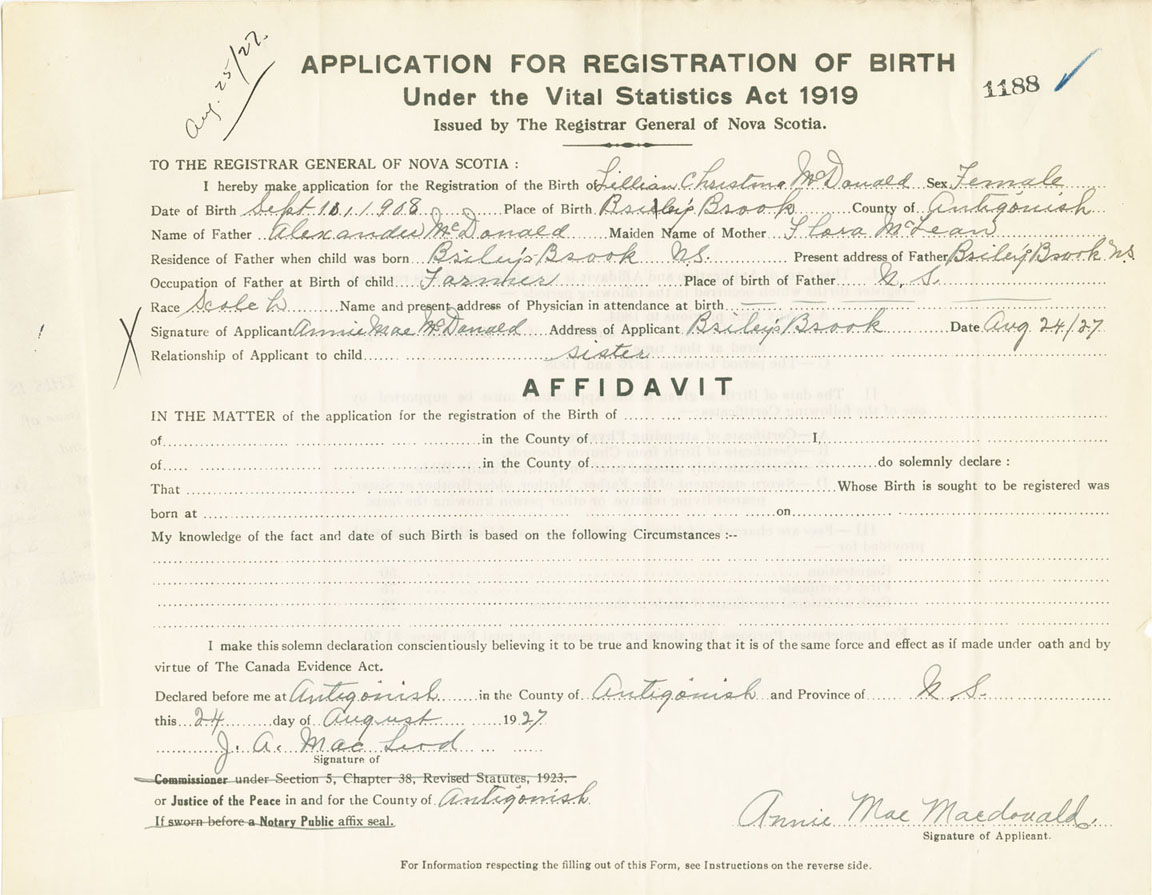 Aug. 25/27.
APPLICATION FOR REGISTRATION OF BIRTH
1188
Under the Vital Statistics Act 1919
Issued by The Registrar General of Nova Scotia.
TO THE REGISTRAR GENERAL OF NOVA SCOTIA :
I hereby make application for the Registration of the Birth of Lillian Christina McDonald Sex Female
Date of Birth Sept. 1908 Place of Birth Briley's Brook County of Antigonish
Name of Father Alexander McDonald Maiden Name of Mother Flora McLean
Residence of Father when child was born Briley's Brook N.S. Present address of Father Briley's Brook N.S.
Occupation of Father at Birth of child Farmer Place of birth of Father N. S.
Race Scotch Name and present address of Physician in attendance at birth
X Signature of Applicant Annie Mae McDonald Address of Applicant Briley's Brook Date Aug 24/27
Relationship of Applicant to child sister
AFFIDAVIT
IN THE MATTER of the application for the registration of the Birth of
of in the County of I,
of in the County of do solemnly declare :
That Whose Birth is sought to be registered was
born at on
My knowledge of the fact and date of such Birth is based on the following Circumstances :--
I make this solemn declaration conscientiously believing it to be true and knowing that it is of the same force and effect as if made under oath and by
virtue of The Canada Evidence Act.
Declared before me at Antigonish in the County of Antigonish and Province of N. S.
this 24 day of August 1927
J. A. MacLeod
Signature of
Commissioner under Section 5, Chapter 38, Revised Statutes, 1923,
or Justice of the Peace in and for the County of Antigonish
If sworn before a Notary Public affix seal.
Annie Mae Macdonald.
Signature of Applicant.
For Information respecting the filling out of this Form, see Instructions on the reverse side.